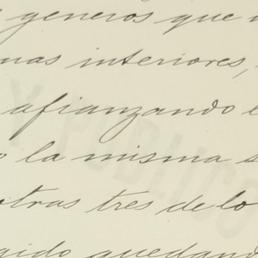 generos que
nas interiores,
afianzando e
o la misma s
otras tres de lo
gido quedand